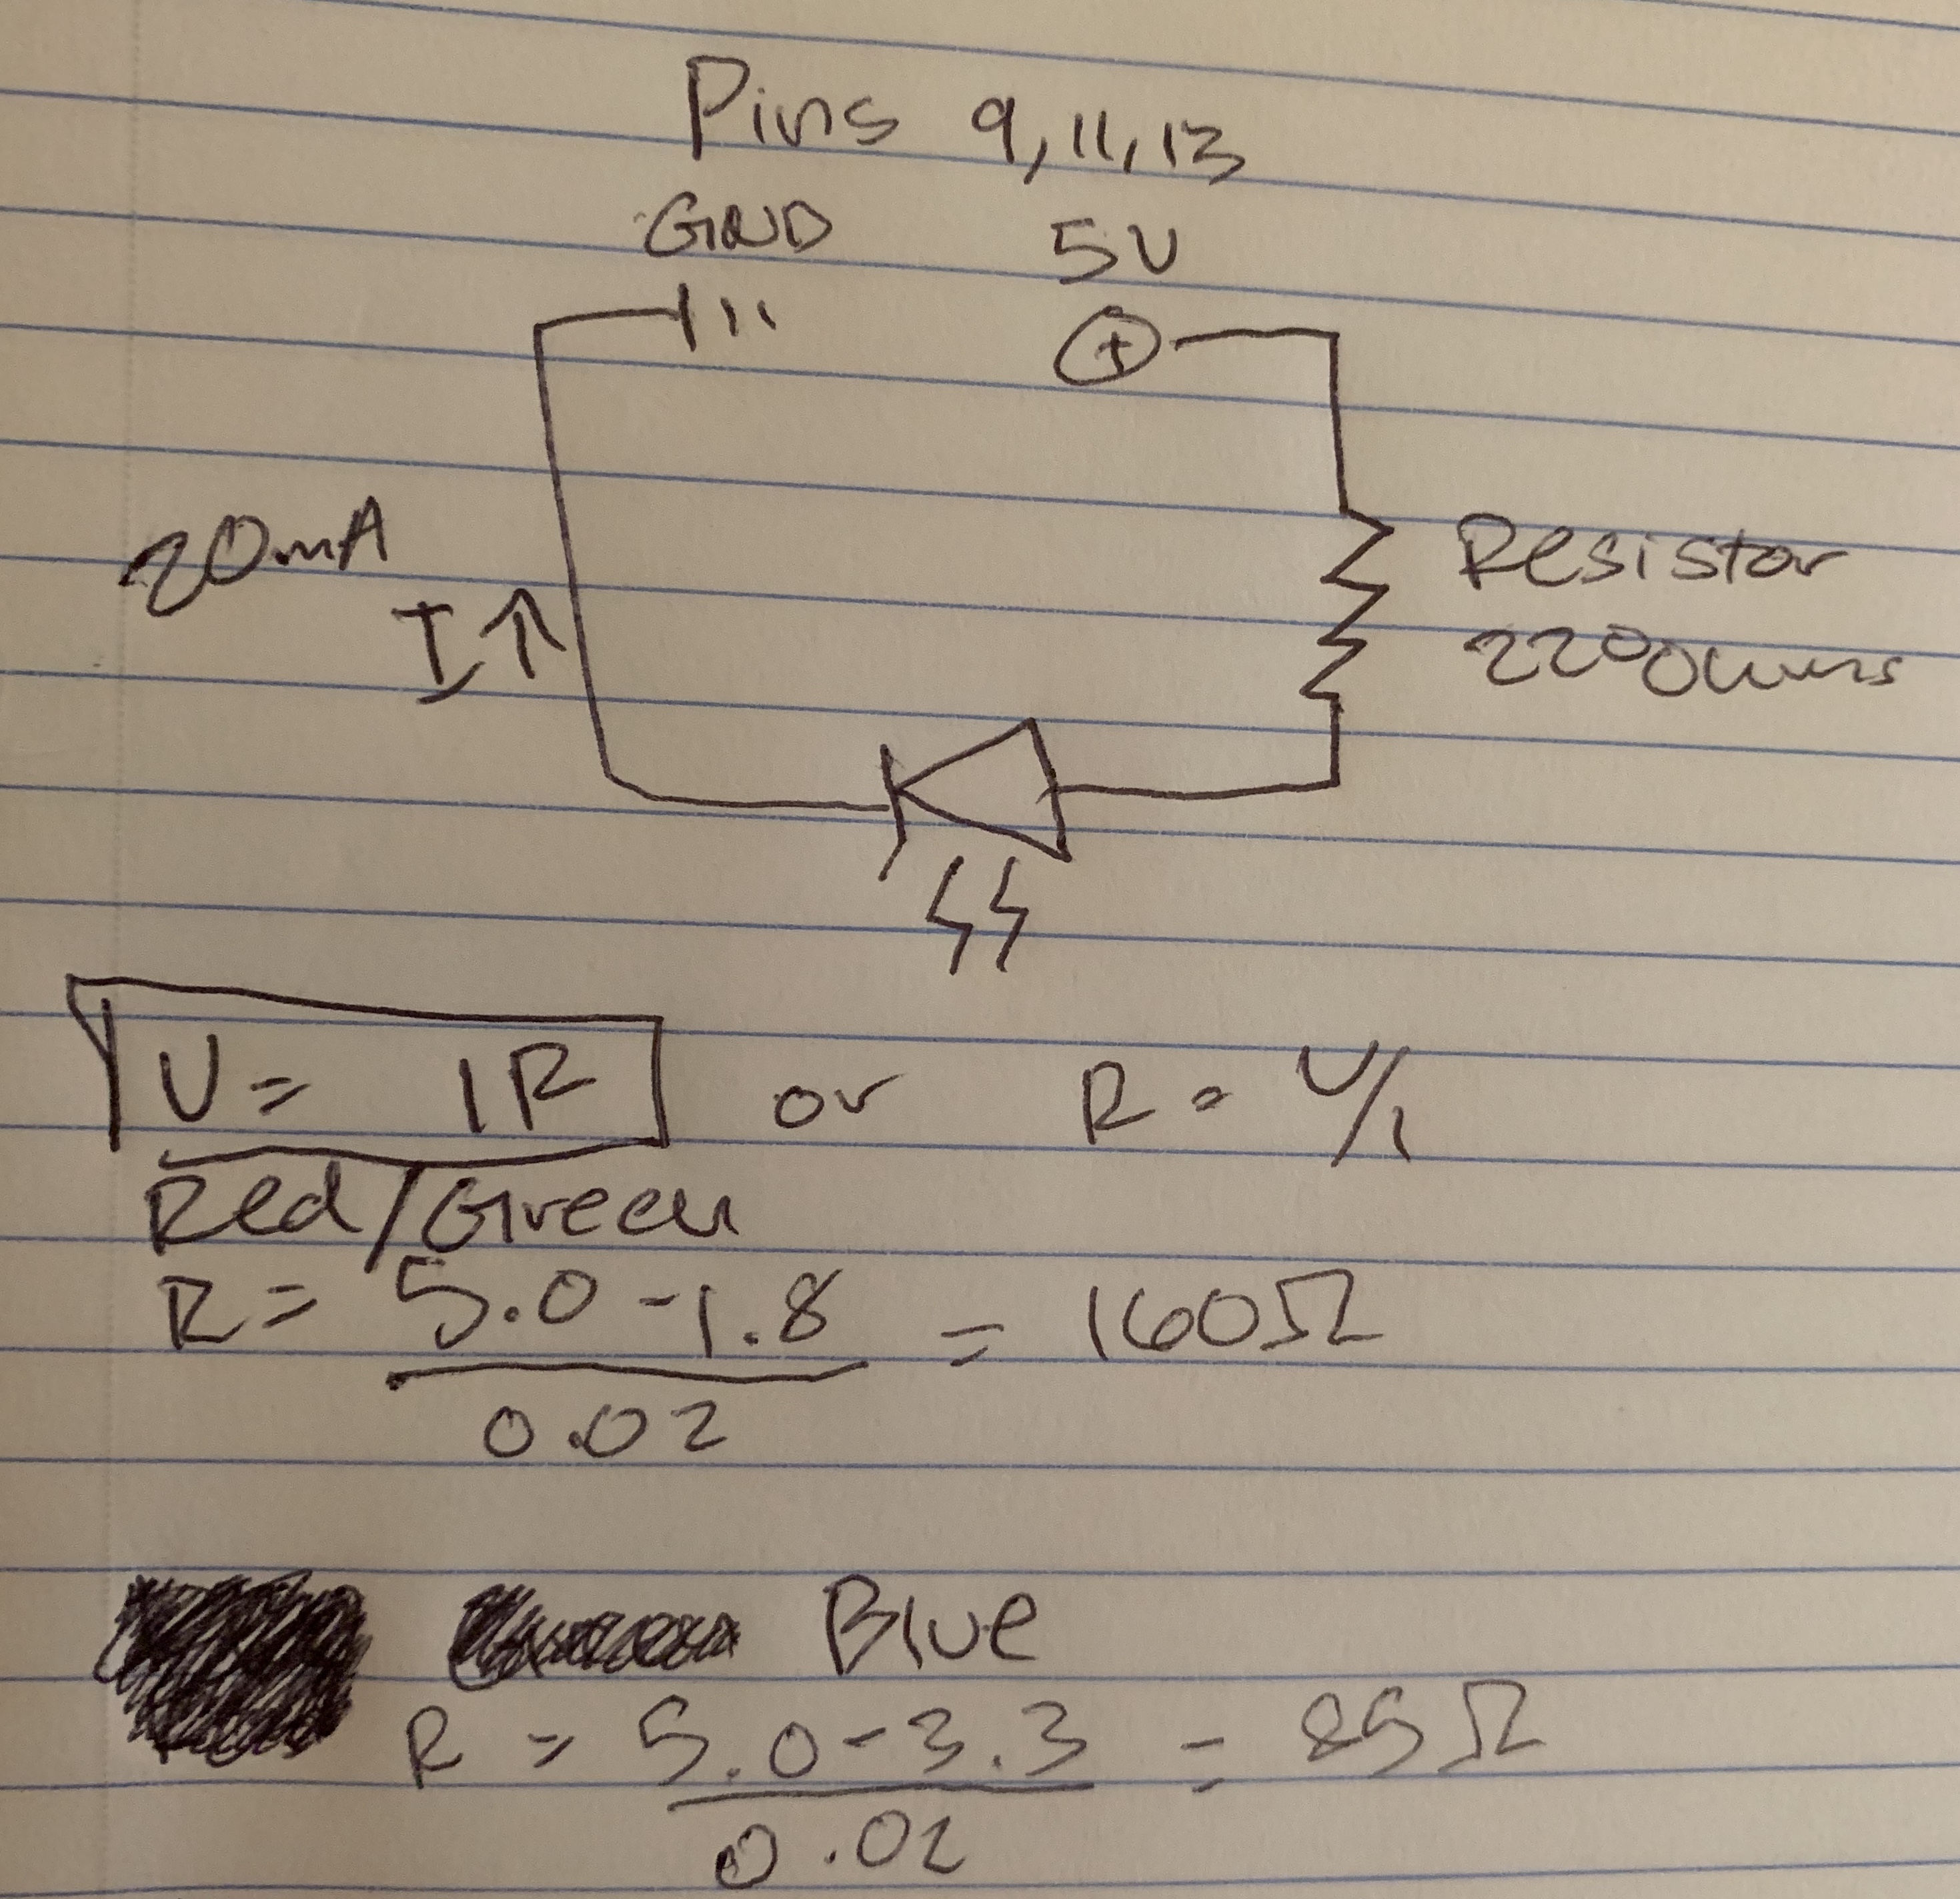 Pins 9, 11, 13
GND 5V
+
20mA
I↑
Resistor
220 Ohms
V = IR or R = V/I
Red/Green
R = 5.0 - 1.8 = 160Ω
0.02
Blue
R = 5.0 - 3.3 = 85Ω
0.02